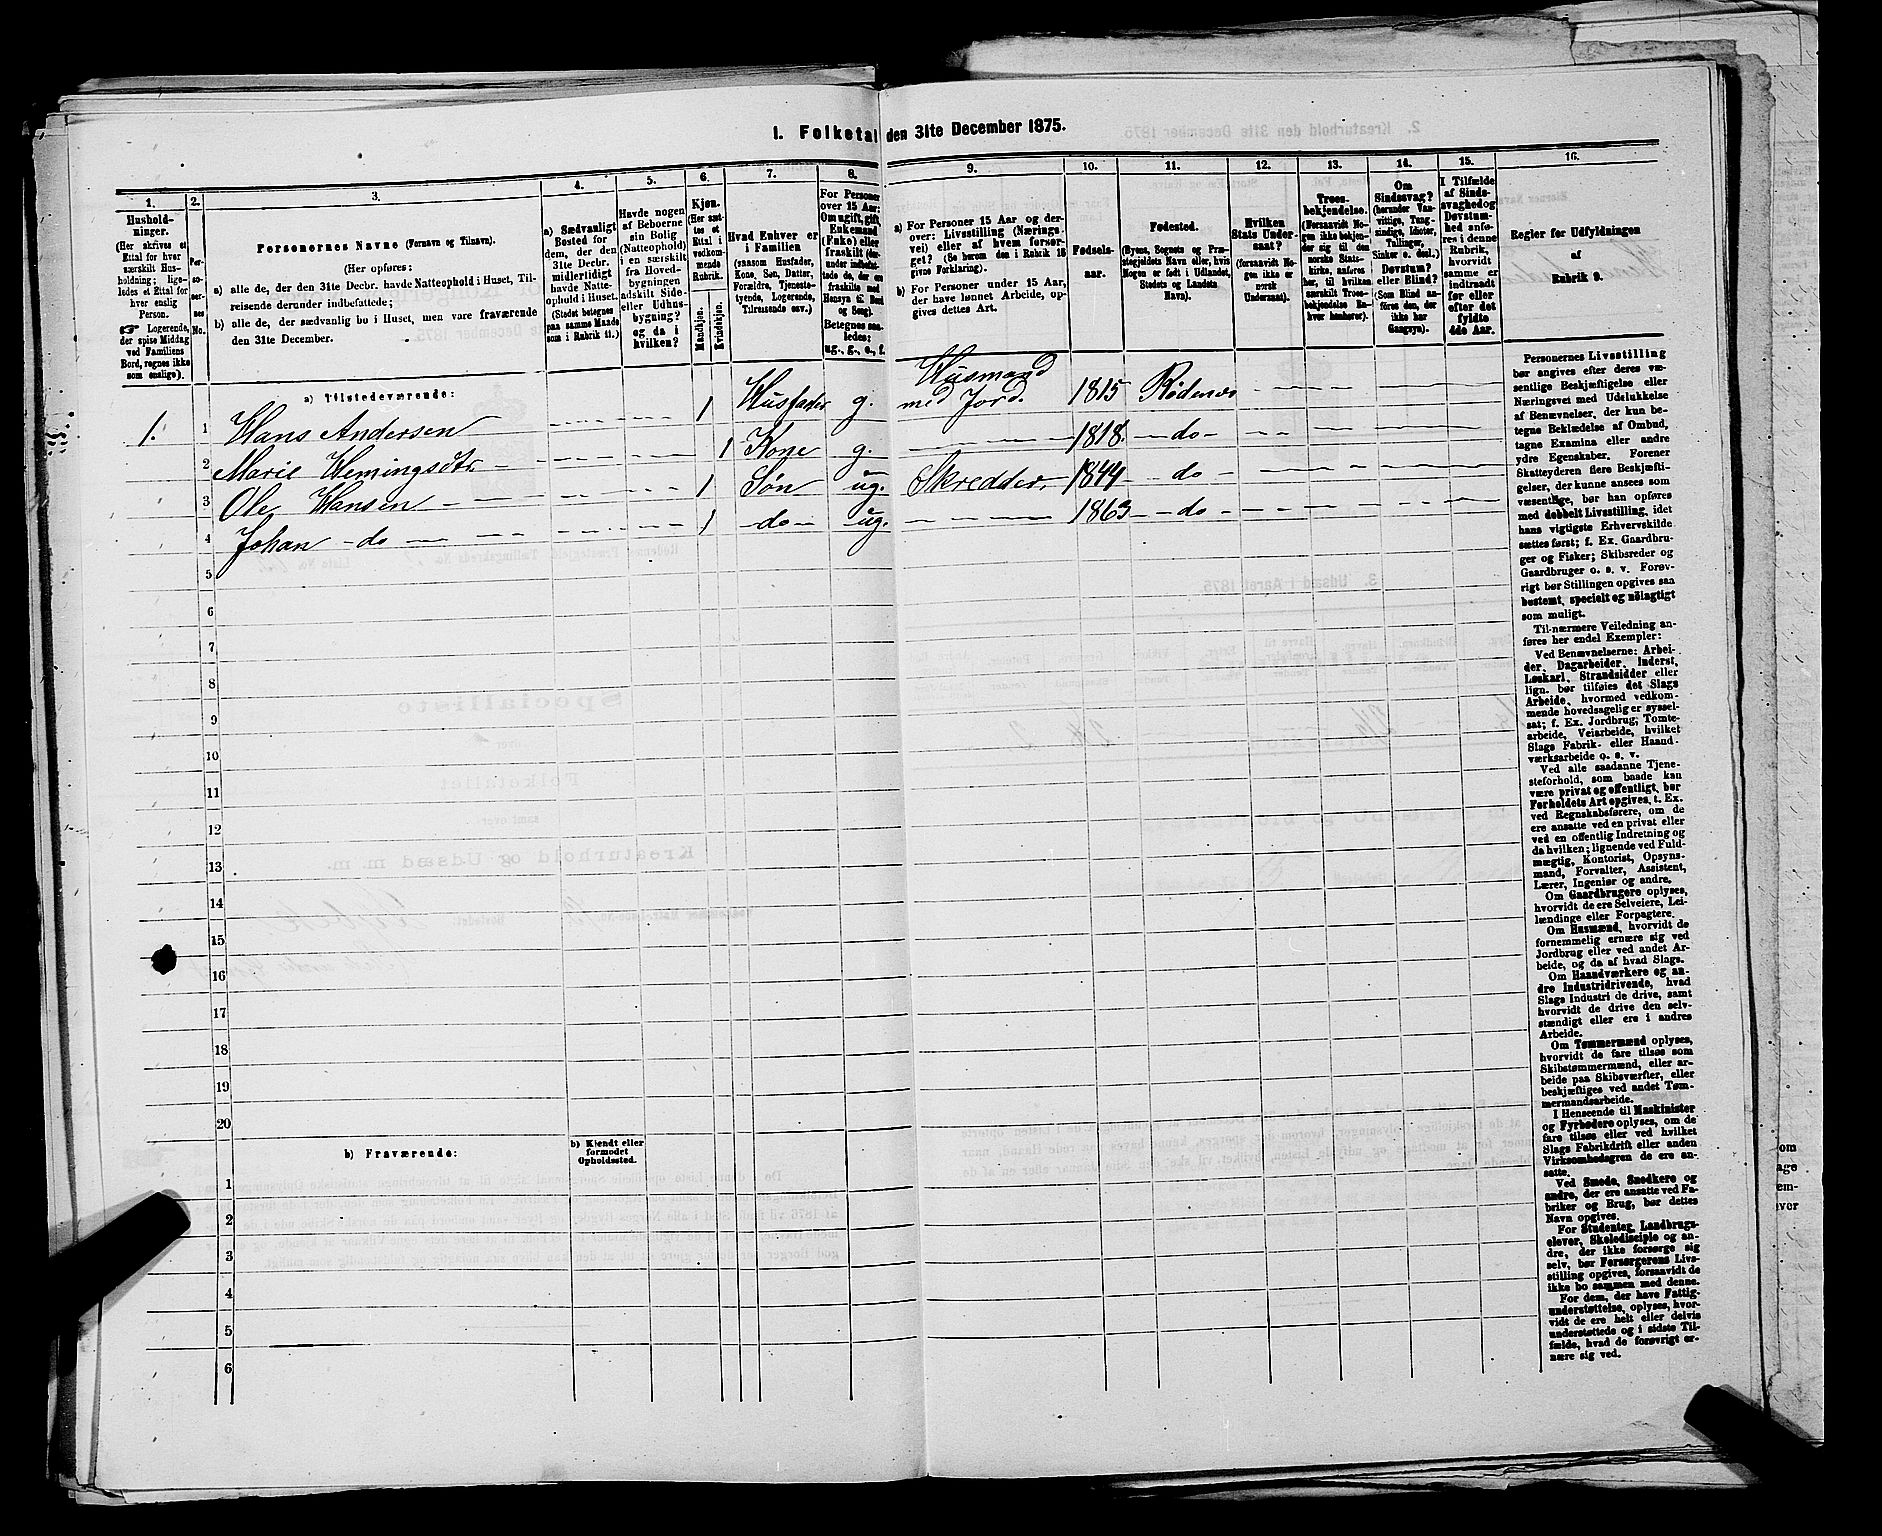 1. Folketal den 31te December 1875.
1. 2. 3. 4. 5. 6. 7. 8. 9. 10. 11. 12. 13. 14. 15. 16.
Hushold-
ninger.
(Her skrives et
Ettal for hver
særskilt Hus-
holdning; lige-
ledes et Ettal for
hver enslig
Person.
☞ Logerende,
der spise Middag
ved Familiens
Bord, regnes ikke
som enslige).
Per-
so-
ner-
nes
No.
Personernes Navne (Fornavn og Tilnavn).
(Her opføres:
a) alle de, der den 31te Decbr. havde Natteophold i Huset, Til-
reisende derunder indbefattede;
b) alle de, der sædvanlig bo i Huset, men vare fraværende
den 31te December.
a) Sædvanligt
Bosted for
dem, der den
31te Decbr.
midlertidigt
havde Natte-
ophold i Huset.
(Stedet betegnes
paa samme Maade
som i Rubrik 11.)
Havde nogen
af Beboerne
sin Bolig
(Natteophold)
i en særskilt
fra Hoved-
bygningen
adskilt Side-
eller Udhus-
bygning?
og da i
hvilken?
Kjøn.
(Her sæt-
tes et
Ettal i
vedkom-
mende
Rubrik.
Mandkjøn.
Kvindekjøn.
Hvad Enhver er
i Familien
(saasom Husfader,
Kone, Søn, Datter,
Forældre, Tjeneste-
tyende, Logerende,
Tilreisende osv.)
For Personer
over 15 Aar:
Om ugift, gift,
Enkemand
(Enke) eller
fraskilt
Betegnes saa-
ledes:
ug., g., e., f.
a) For Personer 15 Aar og der-
over: Livsstilling (Nærings-
vei) eller af hvem forsør-
get? (Se herom den i Rubrik 16
givne Forklaring).
b) For Personer under 15 Aar,
der have lønnet Arbeide, op-
gives dettes Art.
Fødsels-
aar.
Fødested.
(Byens, Sognets og Præ-
stegjeldets Navn eller, hvis
Nogen er født i Udlandet,
Stedets og Landets
Navn).
Hvilken
Stats Under-
saat?
(forsaavidt No-
gen ikke er
norsk
Undersaat).
Troes-
bekjendelse.
(Forsaavidt No-
gen ikke bekjen-
der sig til den
norske Stats-
kirke, anføres
her, til hvilken
særskilt Troes-
bekjendelse En-
hver henhører).
Om
Sindssvag?
(herunder Van-
vittige, Tung-
sindige, Idioter,
Tullinger,
Sinker o. desl.)
Døvstum?
eller Blind?
(Som Blind an-
føres den, der
ikke har
Gangsyn).
I Tilfælde
af Sinds-
svaghed og
Døvstum-
hed anfø-
res i denne
Rubrik,
hvorvidt
samme er
indtraadt
før eller
efter det
fyldte
4de Aar.
Regler for Udfyldningen
af
Rubrik 9.
a) Tilstedeværende:
1. 1 Hans Andersen 1 Husfader g. Husmand med Jord. 1815 Rødenæs
2 Marie Hemingsdtr 1 Kone g. 1818. do
3 Ole Hansen 1 Søn ug. Skredder. 1844 do
4 Johan do 1 do ug. 1863 do
5
6
7
8
9
10
11
12
13
14
15
16
17
18
19
20
b) Fraværende:
b) Kjendt eller
formodet
Opholdssted.
1
2
3
4
5
6
Personernes Livsstilling
bør angives efter deres væ-
sentlige Beskjæftigelse eller
Næringsvei med Udelukkelse
af Benævnelser, der kun be-
tegne Beklædelse af Ombud,
tagne Examina eller andre
ydre Egenskaber. Forener
Skatteyderen flere Beskjæfti-
gelser, der kunne ansees som
væsentlige, bør han opføres
med dobbelt Livsstilling, idet
hans vigtigste Erhvervskilde
sættes først; f. Ex. Gaardbru-
ger og Fisker; Skibsreder og
Gaardbruger o. s. v. Forøv-
rigt bør Stillingen opgives saa
bestemt, specielt og nøiagtigt
som muligt.
Til nærmere Veiledning an-
føres her endel Exempler:
Ved Benævnelserne: Arbei-
der, Dagarbeider, Inderst,
Løskarl, Strandsidder eller
lign. bør tilføies det Slags
Arbeide, hvormed vedkom-
mende hovedsagelig er syssel-
sat; f. Ex. Jordbrug; Tomte-
arbeide, Veiarbeide, hvilket
Slags Fabrik- eller Haand-
værksarbeide o. s. v.
Ved alle saadanne Tjene-
steforhold, som baade kan
være privat og offentligt, bør
Forholdets Art opgives, t. Ex.
ved Regnskabsførere, om de
ere ansatte ved en privat eller
ved en offentlig Indretning og
da hvilken; lignende ved Fuld-
mægtig, Kontorist, Opsyns-
mand, Forvalter, Assistent,
Lærer, Ingeniør og andre.
Om Gaardbrugere oplyses,
hvorvidt de ere Selveiere, Lei-
lændinge eller Forpagtere.
Om Husmænd, hvorvidt de
fornemmelig ernære sig ved
Jordbrug eller ved andet Ar-
beide, og da af hvad Slags.
Om Haandværkere og an-
dre Industridrivende, hvad
Slags Industri de drive, samt
hvorvidt de drive den selv-
stændigt eller ere i andres
Arbeide.
Om Tømmermænd oplyses,
hvorvidt de fare tilsøs som
Skibstømmermænd, eller ar-
beide paa Skibsværfter, eller
beskjæftiges ved andet Tøm-
mermandsarbeide.
I Henseende til Maskinister
og Fyrbødere oplyses, om de
fare tilsøs eller ved hvilket
Slags Fabrikdrift eller anden
Virksomhedsgren de ere an-
satte.
Ved Smede, Snedkere og
andre, der ere ansatte ved Fa-
briker og Brug, bør dettes
Navn opgives.
For Studenter, Landbrugs-
elever, Skoledisciple og an-
dre, der ikke forsørge sig
selv, bør Forsørgerens Livs-
stilling opgives, forsaavidt de
ikke bo sammen med denne.
For dem, der have Fattig-
understøttelse, oplyses, hvor-
vidt de ere helt eller delvis
understøttede og i sidste Til-
fælde, hvad de forøvrigt er-
nære sig ved.